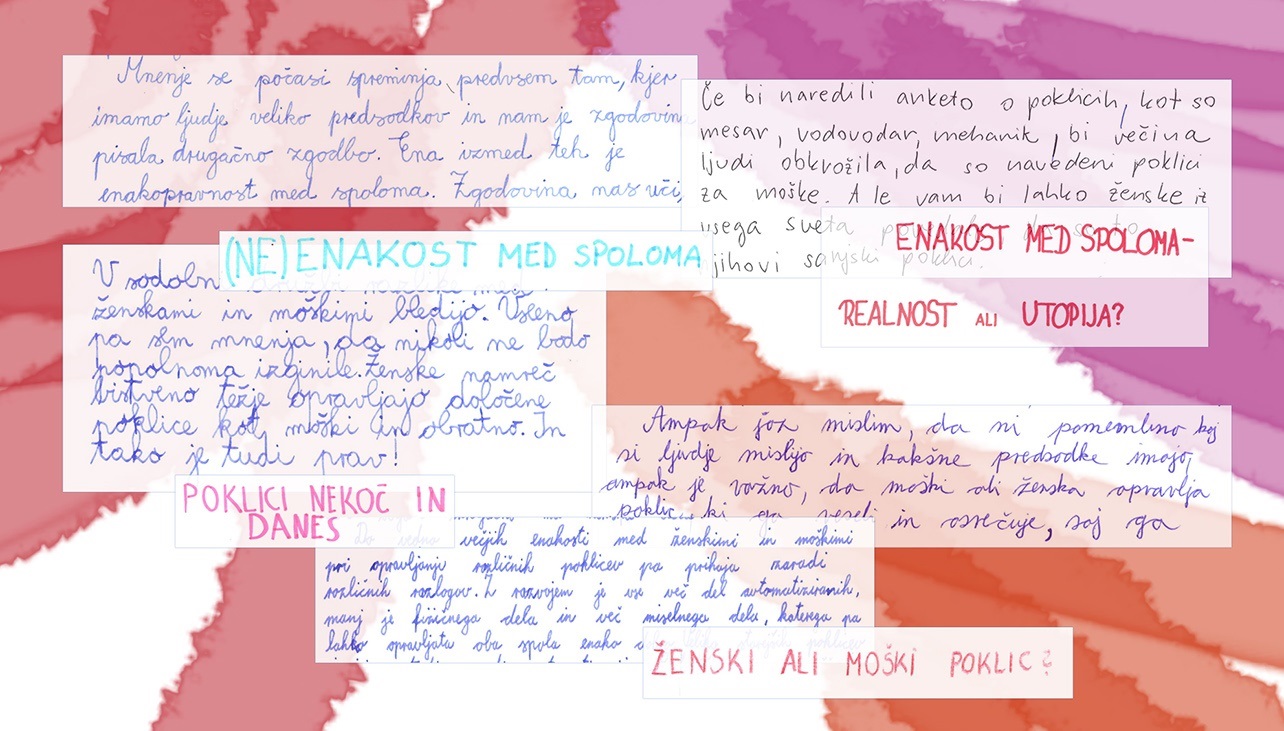 Mnenje se počasi spreminja, predvsem tam, kjer
imamo ljudje veliko predsodkov in nam je zgodovina
pisala drugačno zgodbo. Ena izmed teh je
enakopravnost med spoloma. Zgodovina nas uči,
Če bi naredili anketo o poklicih, kot so
mesar, vodovodar, mehanik, bi večina
ljudi obkrožila, da so navedeni poklici
za moške. A le vam bi lahko ženske iz
vsega sveta
njihovi sanjski poklici.
ENAKOST MED SPOLOMA-
REALNOST ALI UTOPIJA?
(NE)ENAKOST MED SPOLOMA
V sodobn
ženskami in moškimi bledijo. Vseeno
pa sem mnenja, da nikoli ne bodo
popolnoma izginile. Ženske namreč
bistveno težje opravljajo določene
poklice kot moški in obratno. In
tako je tudi prav!
Ampak jaz mislim, da ni pomembno kaj
si ljudje mislijo in kakšne predsodke imajo,
ampak je važno, da moški ali ženska opravlja
poklic, ki ga veseli in osrečuje, saj ga
POKLICI NEKOČ IN
DANES
Do vedno večjih enakosti med ženskimi in moškimi
pri opravljanju različnih poklicev pa prihaja zaradi
različnih razlogov. Z razvojem je vse več del avtomatiziranih,
manj je fizičnega dela in več miselnega dela, katerega pa
lahko opravljata oba spola enako
ŽENSKI ALI MOŠKI POKLIC?